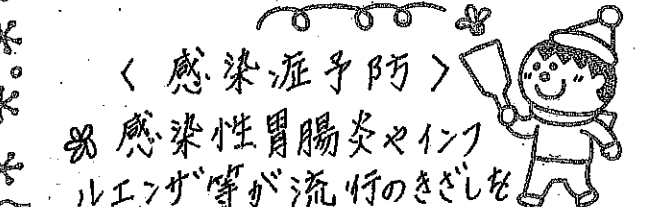 〈感染症予防〉
感染性胃腸炎やインフ
ルエンザ等が流行のきざしを